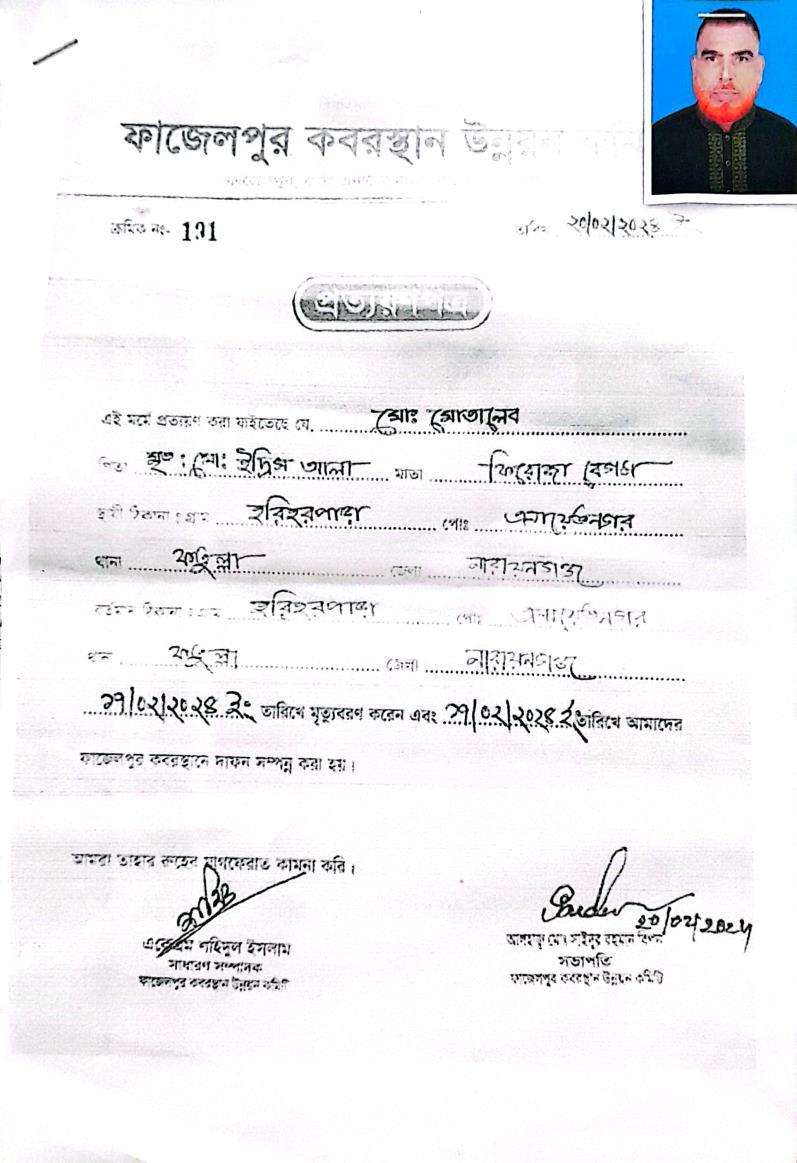 ফাজেলপুর কবরস্থান উন্নয়ন কমি
ক্রমিক নং- 191 তারিখ ২০/০২/২০২৪ ইং
প্রত্যয়ণপত্র
এই মর্মে প্রত্যয়ণ করা যাইতেছে যে, মোঃ মোতালেব
পিতা মৃত: মোঃ ইদ্রিস আলী মাতা ফিরোজা বেগম
স্থায়ী ঠিকানা : গ্রাম হরিহরপাড়া পোঃ এনায়েতনগর
থানা ফতুল্লা জেলা নারায়নগঞ্জ
বর্তমান ঠিকানা : গ্রাম হরিহরপাড়া পোঃ এনায়েতনগর
থানা ফতুল্লা জেলা নারায়নগঞ্জ
১৭/০২/২০২৪ ইং তারিখে মৃত্যুবরণ করেন এবং ১৭/০২/২০২৪ ইং তারিখে আমাদের
ফাজেলপুর কবরস্থানে দাফন সম্পন্ন করা হয়।
আমরা তাহার রুহের মাগফেরাত কামনা করি।
২০/০২/২০২৪
শহিদুল ইসলাম
আলহাজ্ব মোঃ সাইদুর রহমান রিপন
সাধারণ সম্পাদক
সভাপতি
ফাজেলপুর কবরস্থান উন্নয়ন কমিটি
ফাজেলপুর কবরস্থান উন্নয়ন কমিটি